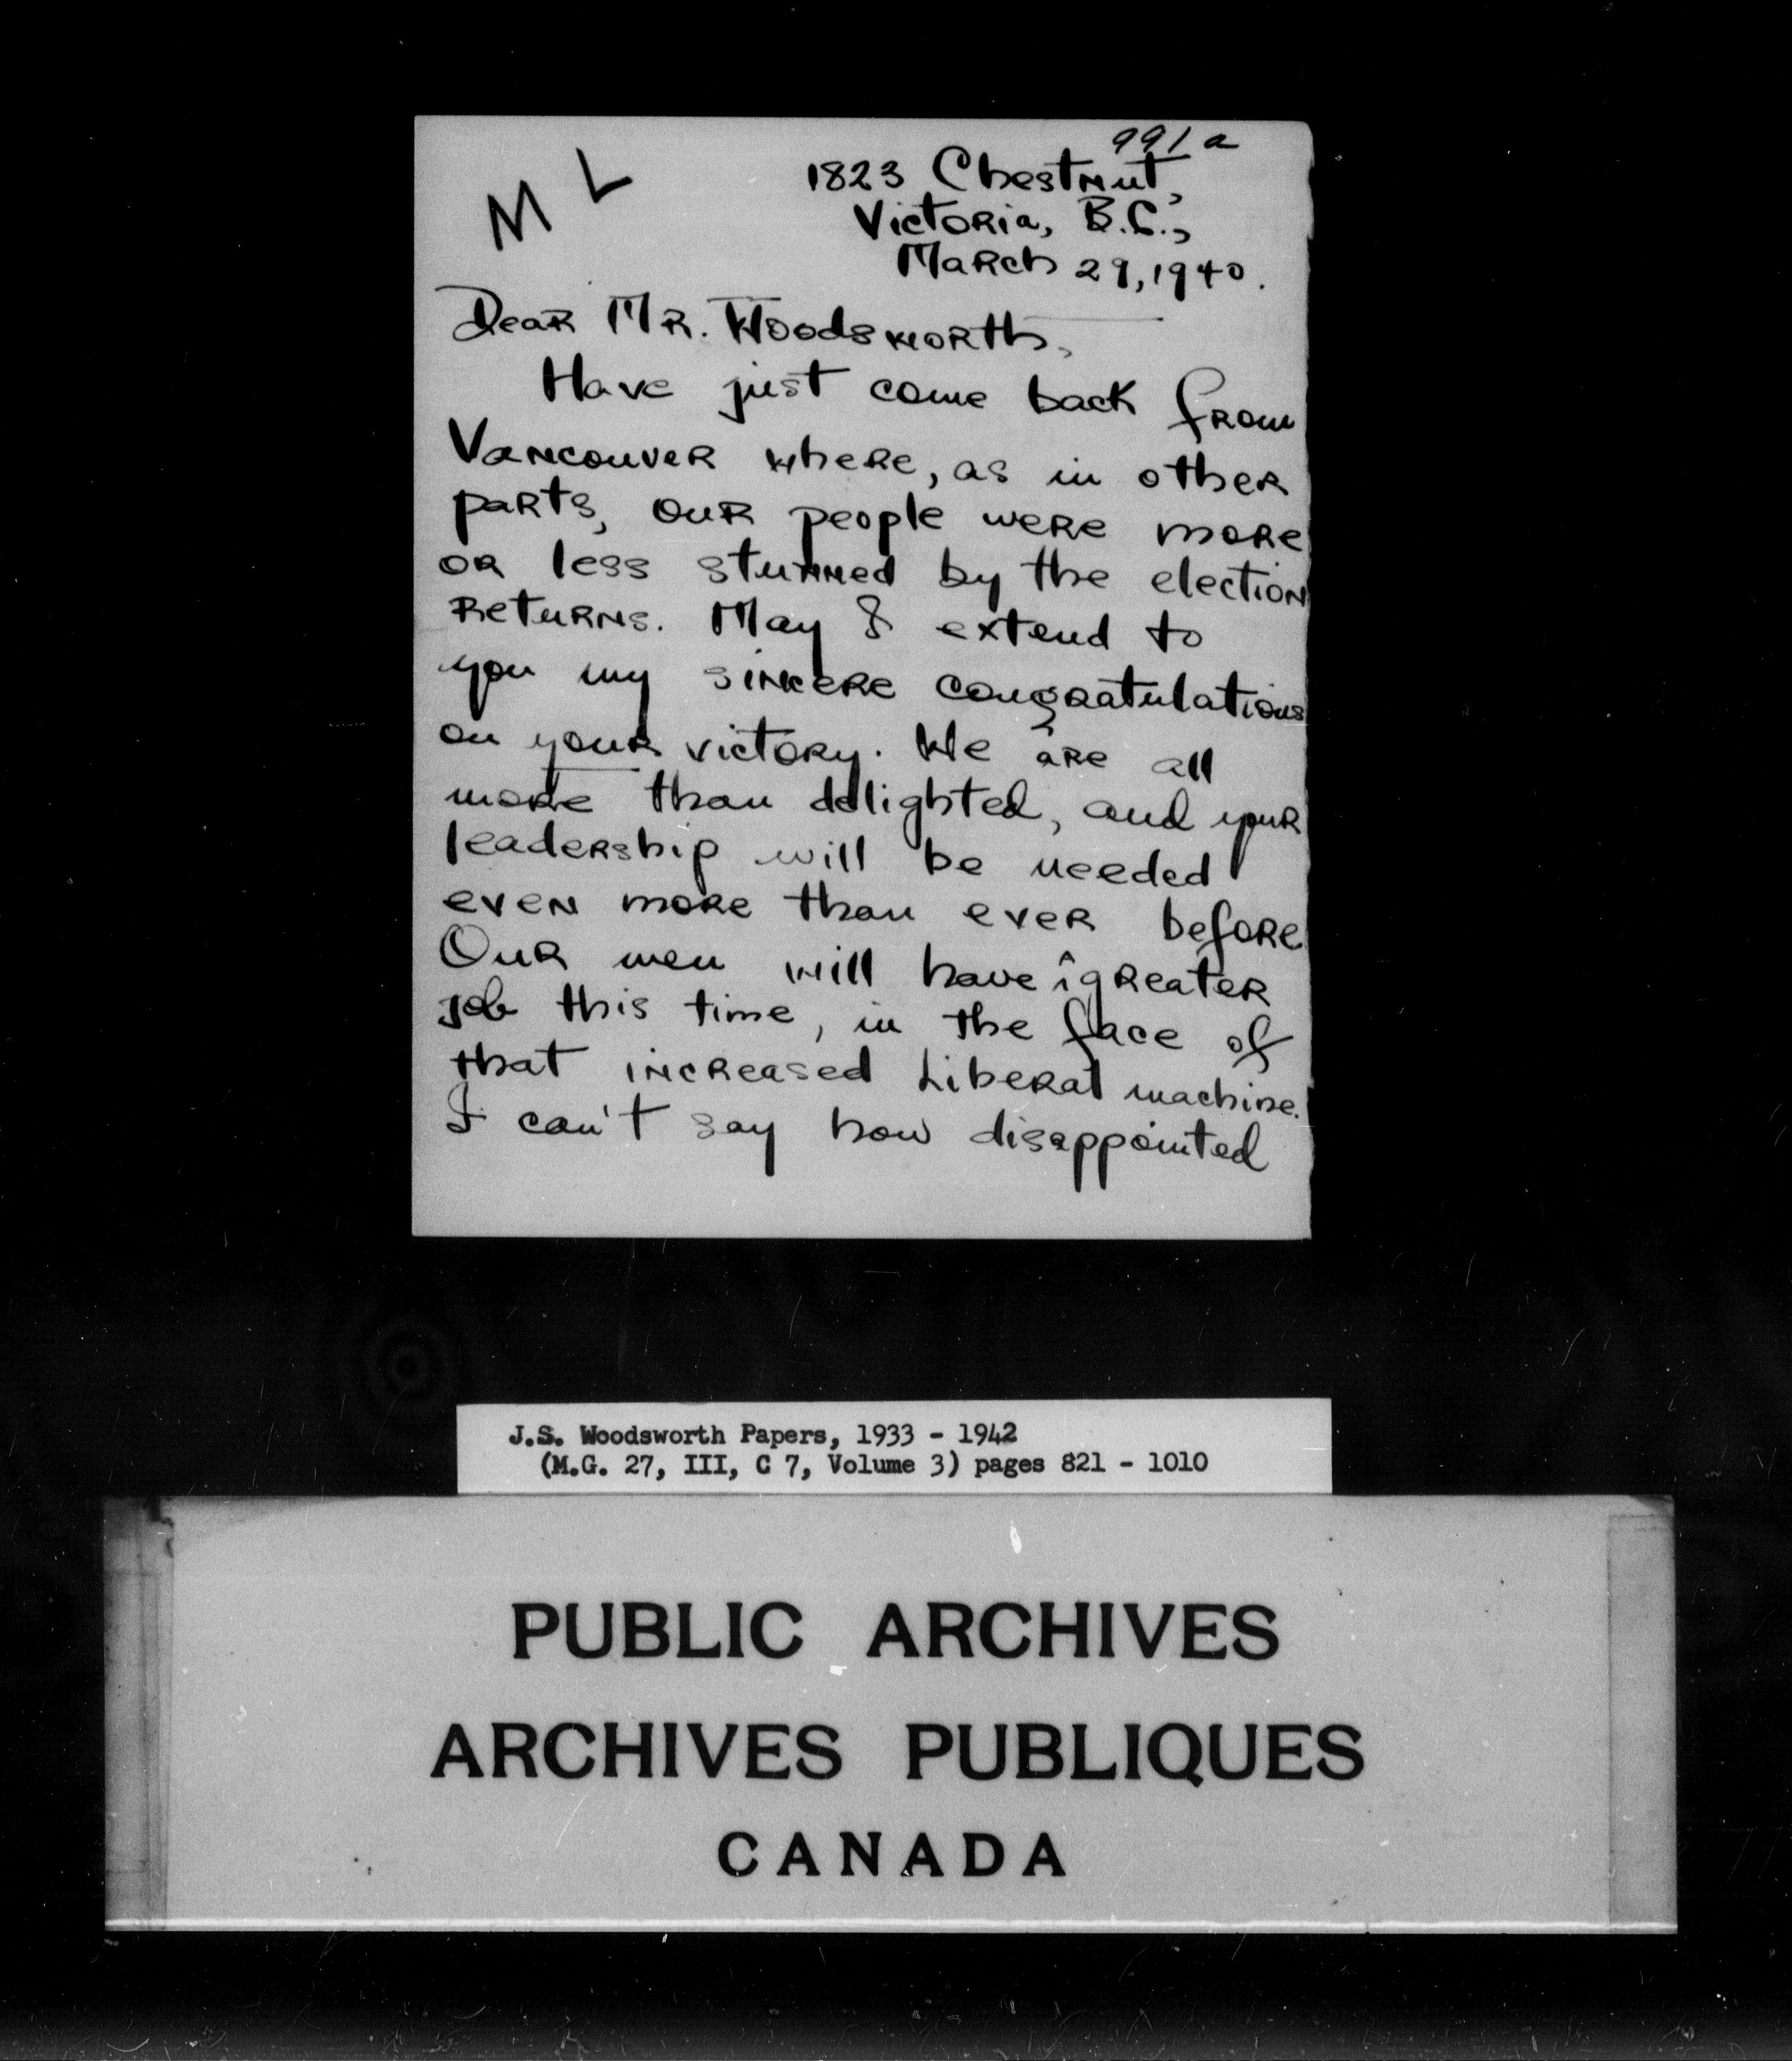 991a
M L
1823 Chestnut,
Victoria, B.C.,
March 29, 1940.
Dear Mr. Woodsworth,
Have just come back from
Vancouver where, as in other
parts, our people were more
or less stunned by the election
returns. May I extend to
you my sincere congratulations
on your victory. We are all
more than delighted, and your
leadership will be needed
even more than ever before.
Our men will have greater
job this time, in the face of
that increased Liberal machine.
I can't say how disappointed
J.S. Woodsworth Papers, 1933 - 1942
(M.G. 27, III, C 7, Volume 3) pages 821 - 1010
PUBLIC ARCHIVES
ARCHIVES PUBLIQUES
CANADA